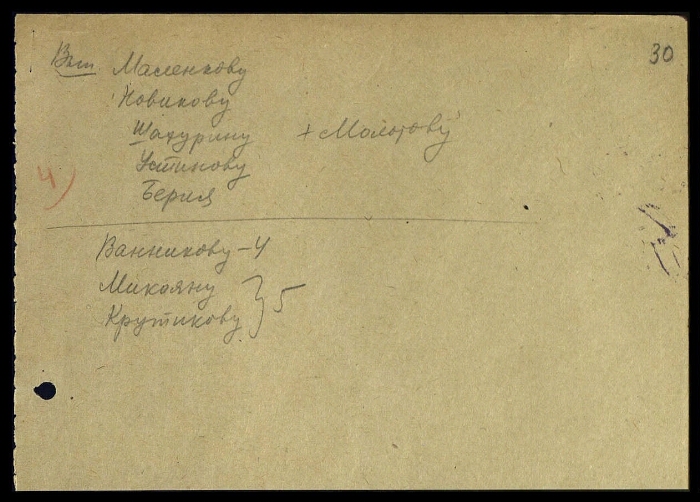 30
Вып Маленкову
Новикову
Шахурину + Молотову
Устинову
4)
Берия
Ванникову - 4
Микояну
Крутикову } 5